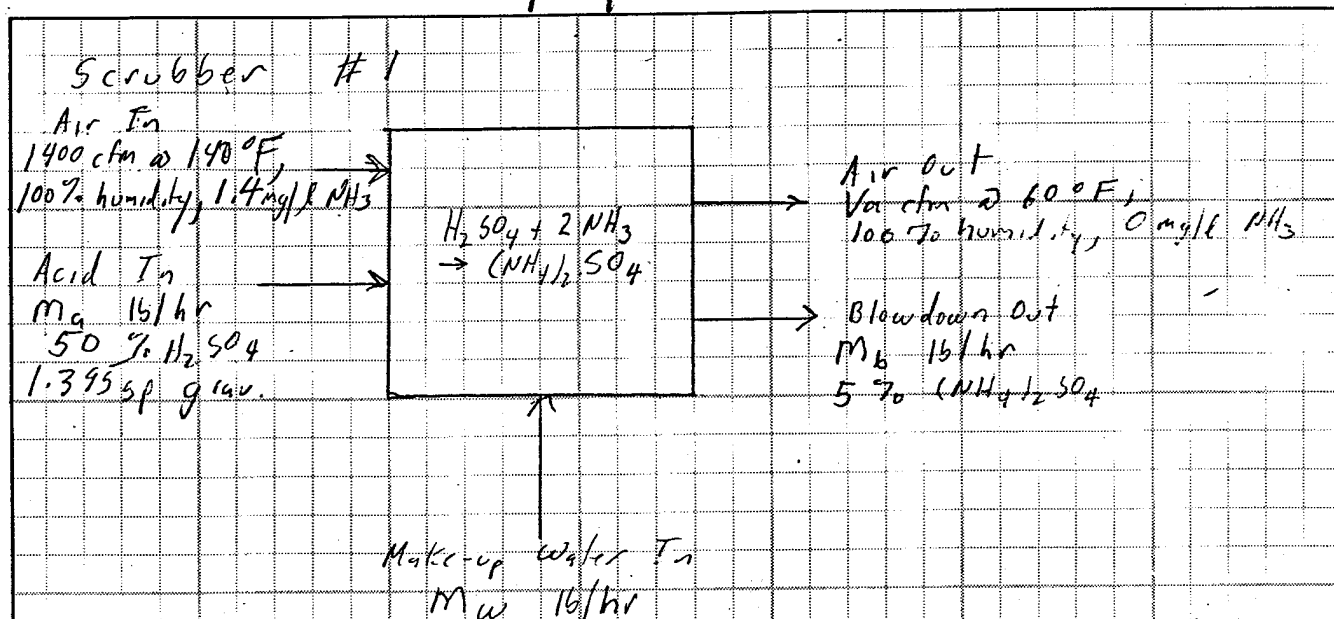 Scrubber #1
Air In
1400 cfm @ 140°F,
100% humidity, 1.4 mg/l NH3
Acid In
Ma lb/hr
50 % H2SO4
1.395 sp grav.
H2SO4 + 2 NH3
→ (NH4)2 SO4
Air Out
Va cfm @ 60°F,
100% humidity, 0 mg/l NH3
Blowdown Out
Mb lb/hr
5 % (NH4)2SO4
Make-up Water In
Mw lb/hr